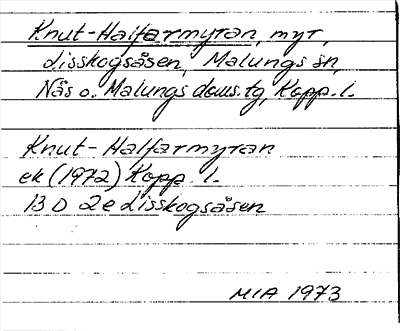 Knut-Halfarmyran, myr,
Lisskogsåsen, Malungs sn,
Nås o. Malungs doms.tg, Kopp. l.
Knut-Halfarmyran
ek (1972) Kopp. l.
13 D 2e Lisskogsåsen
MIA 1973